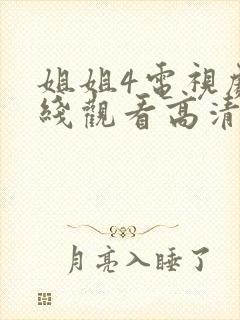 姐姐4電視
綫觀看高清
月亮入睡了